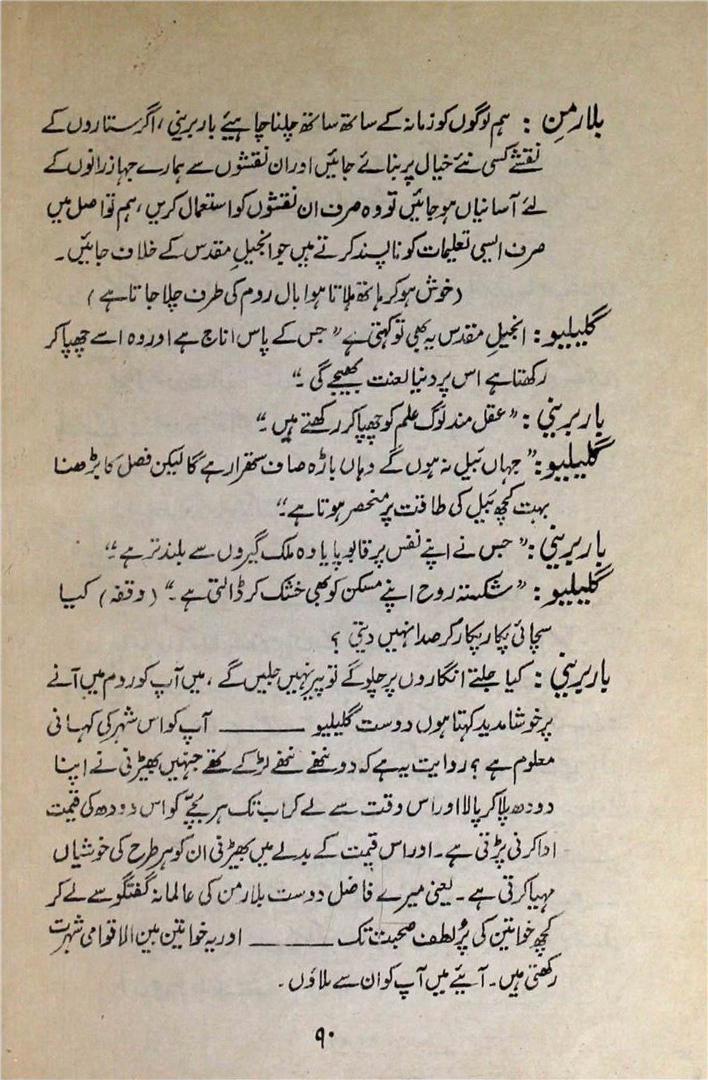 بلارمن : ہم لوگوں کو زمانہ کے ساتھ ساتھ چلنا چاہیئے باربرینی ، اگر ستاروں کے
نقشے کسی نئے خیال پر بنائے جائیں اور ان نقشوں سے ہمارے جہاز رانوں کے
لئے آسانیاں ہو جائیں تو وہ صرف ان نقشوں کو استعمال کریں ، ہم تو اصل میں
صرف ایسی تعلیمات کو ناپسند کرتے ہیں جو انجیلِ مقدس کے خلاف جائیں ۔
(خوش ہو کر ہاتھ ہلاتا ہوا بال روم کی طرف چلا جاتا ہے)
گلیلیو : انجیلِ مقدس یہ بھی تو کہتی ہے " جس کے پاس اناج ہے اور وہ اسے چھپا کر
رکھتا ہے اس پر دنیا لعنت بھیجے گی ۔"
باربرینی : " عقل مند لوگ علم کو چھپا کر رکھتے ہیں ۔"
گلیلیو : " جہاں بَیل نہ ہوں گے وہاں باڑہ صاف ستھرا رہے گا لیکن فصل کا بڑھنا
بہت کچھ بَیل کی طاقت پر منحصر ہوتا ہے ۔"
باربرینی : " جس نے اپنے نفس پر قابو پایا وہ ملک گیروں سے بلند تر ہے ۔"
گلیلیو : " شکستہ روح اپنے مسکن کو بھی خشک کر ڈالتی ہے ۔" (وقفہ) کیا
سچائی پکار پکار کر صدا نہیں دیتی ؟
باربرینی : کیا جلتے انگاروں پر چلو گے تو پیر نہیں جلیں گے ، میں آپ کو روم میں آنے
پر خوشامدید کہتا ہوں دوست گلیلیو ـــــــــ آپ کو اس شہر کی کہانی
معلوم ہے ؟ روایت یہ ہے کہ دو ننھے ننھے لڑکے تھے جنہیں بھیڑنی نے اپنا
دودھ پلا کر پالا اور اس وقت سے لے کر اب تک ہر بچّے کو اس دودھ کی قیمت
ادا کرنی پڑتی ہے ۔ اور اس قیمت کے بدلے میں بھیڑنی ان کو ہر طرح کی خوشیاں
مہیا کرتی ہے ۔ یعنی میرے فاضل دوست بلارمن کی عالمانہ گفتگو سے لے کر
کچھ خواتین کی پُر لطف صحبت تک ـــــــــ اور یہ خواتین بین الاقوامی شہرت
رکھتی ہیں ۔ آیئے میں آپ کو ان سے ملاؤں ۔
۹۰